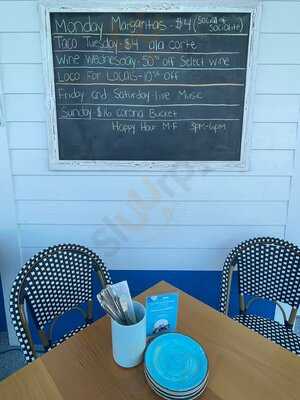 Monday Margaritas - $4 (Social or Socialite)
Taco Tuesday - $4 ala carte
Wine Wednesday - 50% off Select wine
Loco For Locals - 10% off
Friday and Saturday live Music
Sunday - $16 corona Bucket
Happy Hour M-F 3pm-6pm
sluurpy